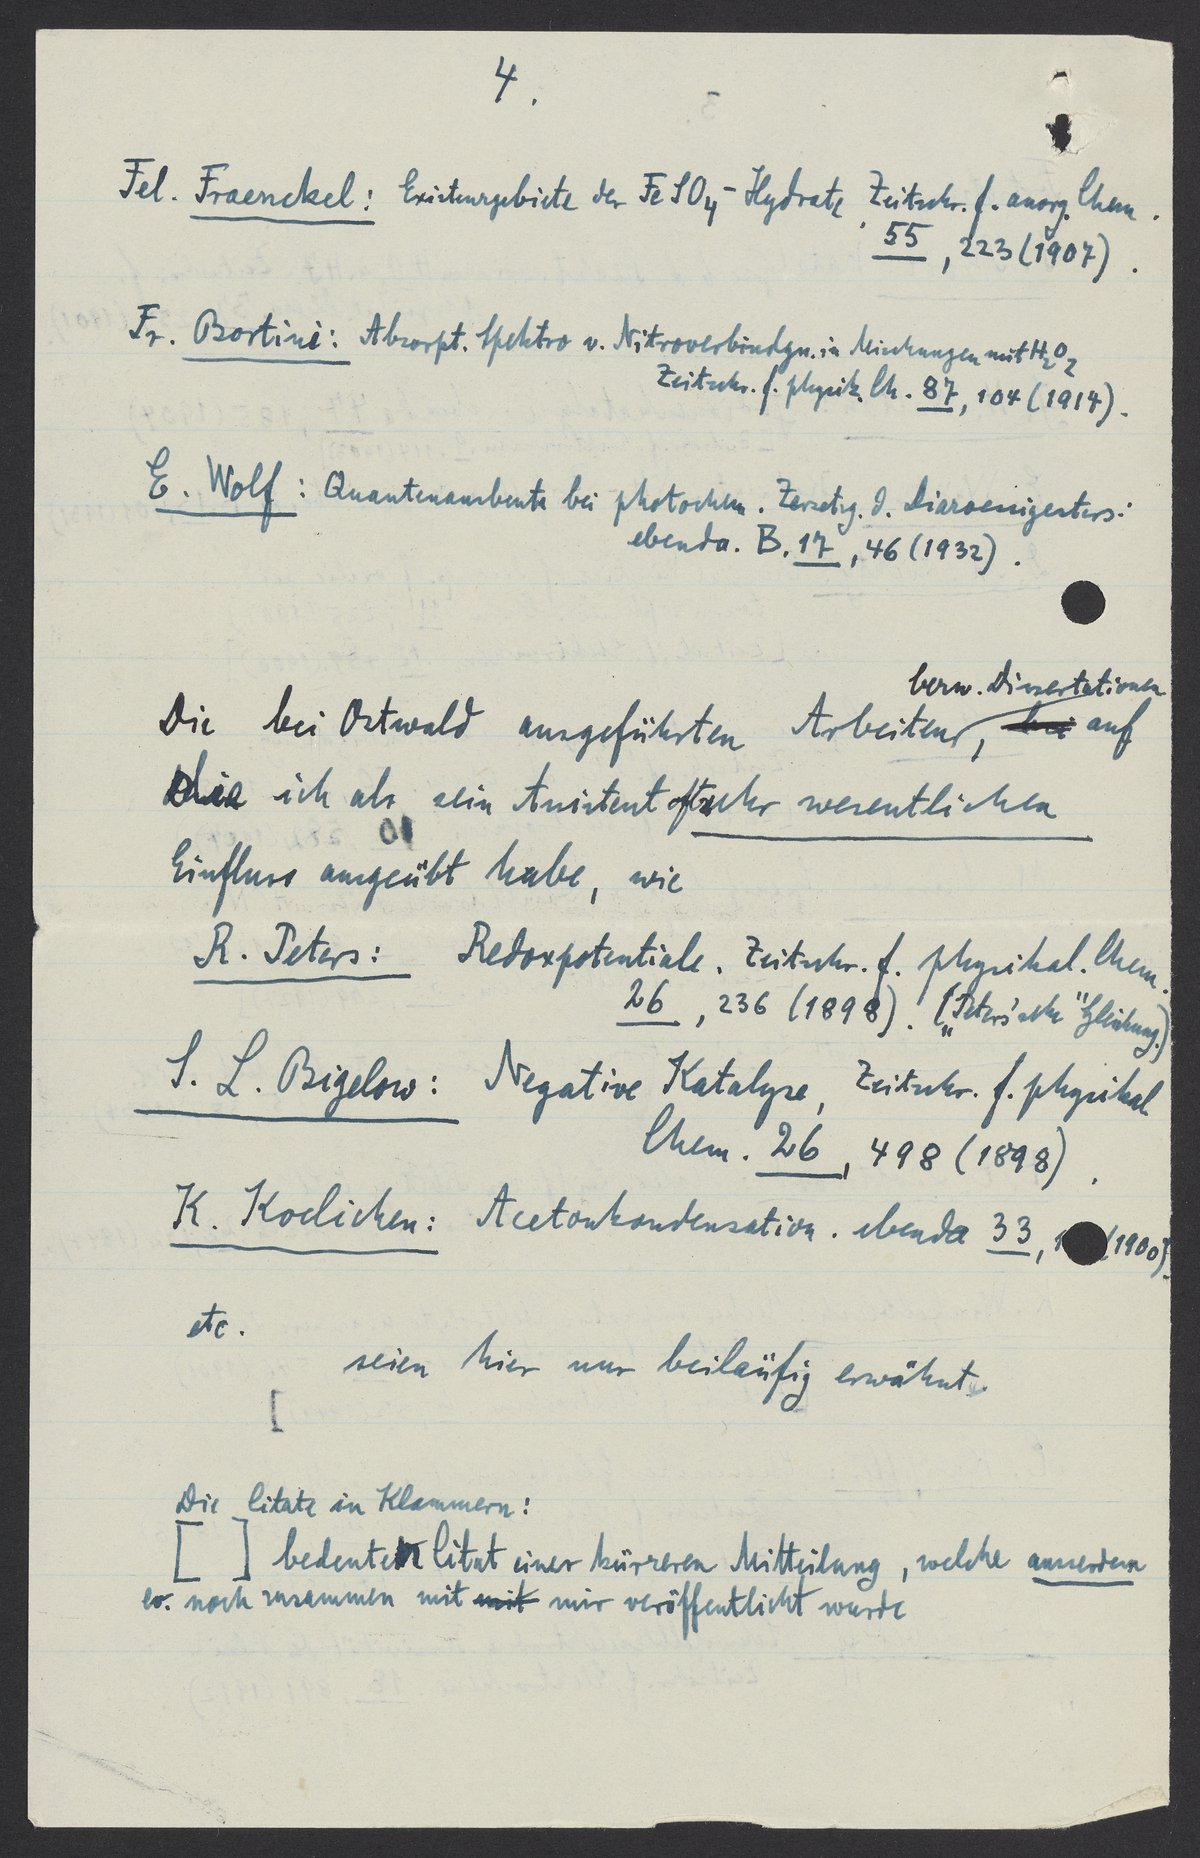 4.
Fel. Fraenckel: Existenzgebiete der FeSO4-Hydrate, Zeitschr. f. anorg. Chem.
55, 223 (1907).
Fr. Bortini: Absorpt. Spektra v. Nitroverbindgn. in Mischungen mit H2O2
Zeitschr. f. physik. Ch. 87, 104 (1914).
E. Wolf: Quantenausbeute bei photochem. Zersetzg. d. Diazoessigesters:
ebenda. B. 17, 46 (1932).
bezw. Dissertationen
Die bei Ostwald ausgeführten Arbeiten, bei auf
die ich als sein Assistent oft sehr wesentlichen
Einfluss ausgeübt habe, wie
R. Peters: Redoxpotentiale. Zeitschr. f. physikal. Chem.
26, 236 (1898). („Peters'sche" Gleichung.)
S. L. Bigelow: Negative Katalyse, Zeitschr. f. physikal
Chem. 26, 498 (1898).
K. Koelichen: Acetonkondensation. ebenda 33, 1 (1900).
etc.
seien hier nur beiläufig erwähnt.
[
Die Citate in Klammern:
[ ] bedeuten Citat einer kürzeren Mitteilung, welche ausserdem
ev. noch zusammen mit mit mir veröffentlicht wurde